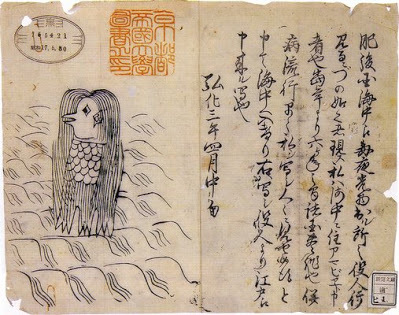 肥後国海中え毎夜光物出ル所之役人行
見るニづの如之者現ス私ハ海中ニ住アマビヱト申
者也当年より六ヶ年之間諸国豊作也併
病流行早々私ヲ写シ人々ニ見せ候得と
申て海中へ入けり右ハ写シ役人より江戸え
申来ル写也
弘化三年四月中旬
京都
帝國大學
圖書之印